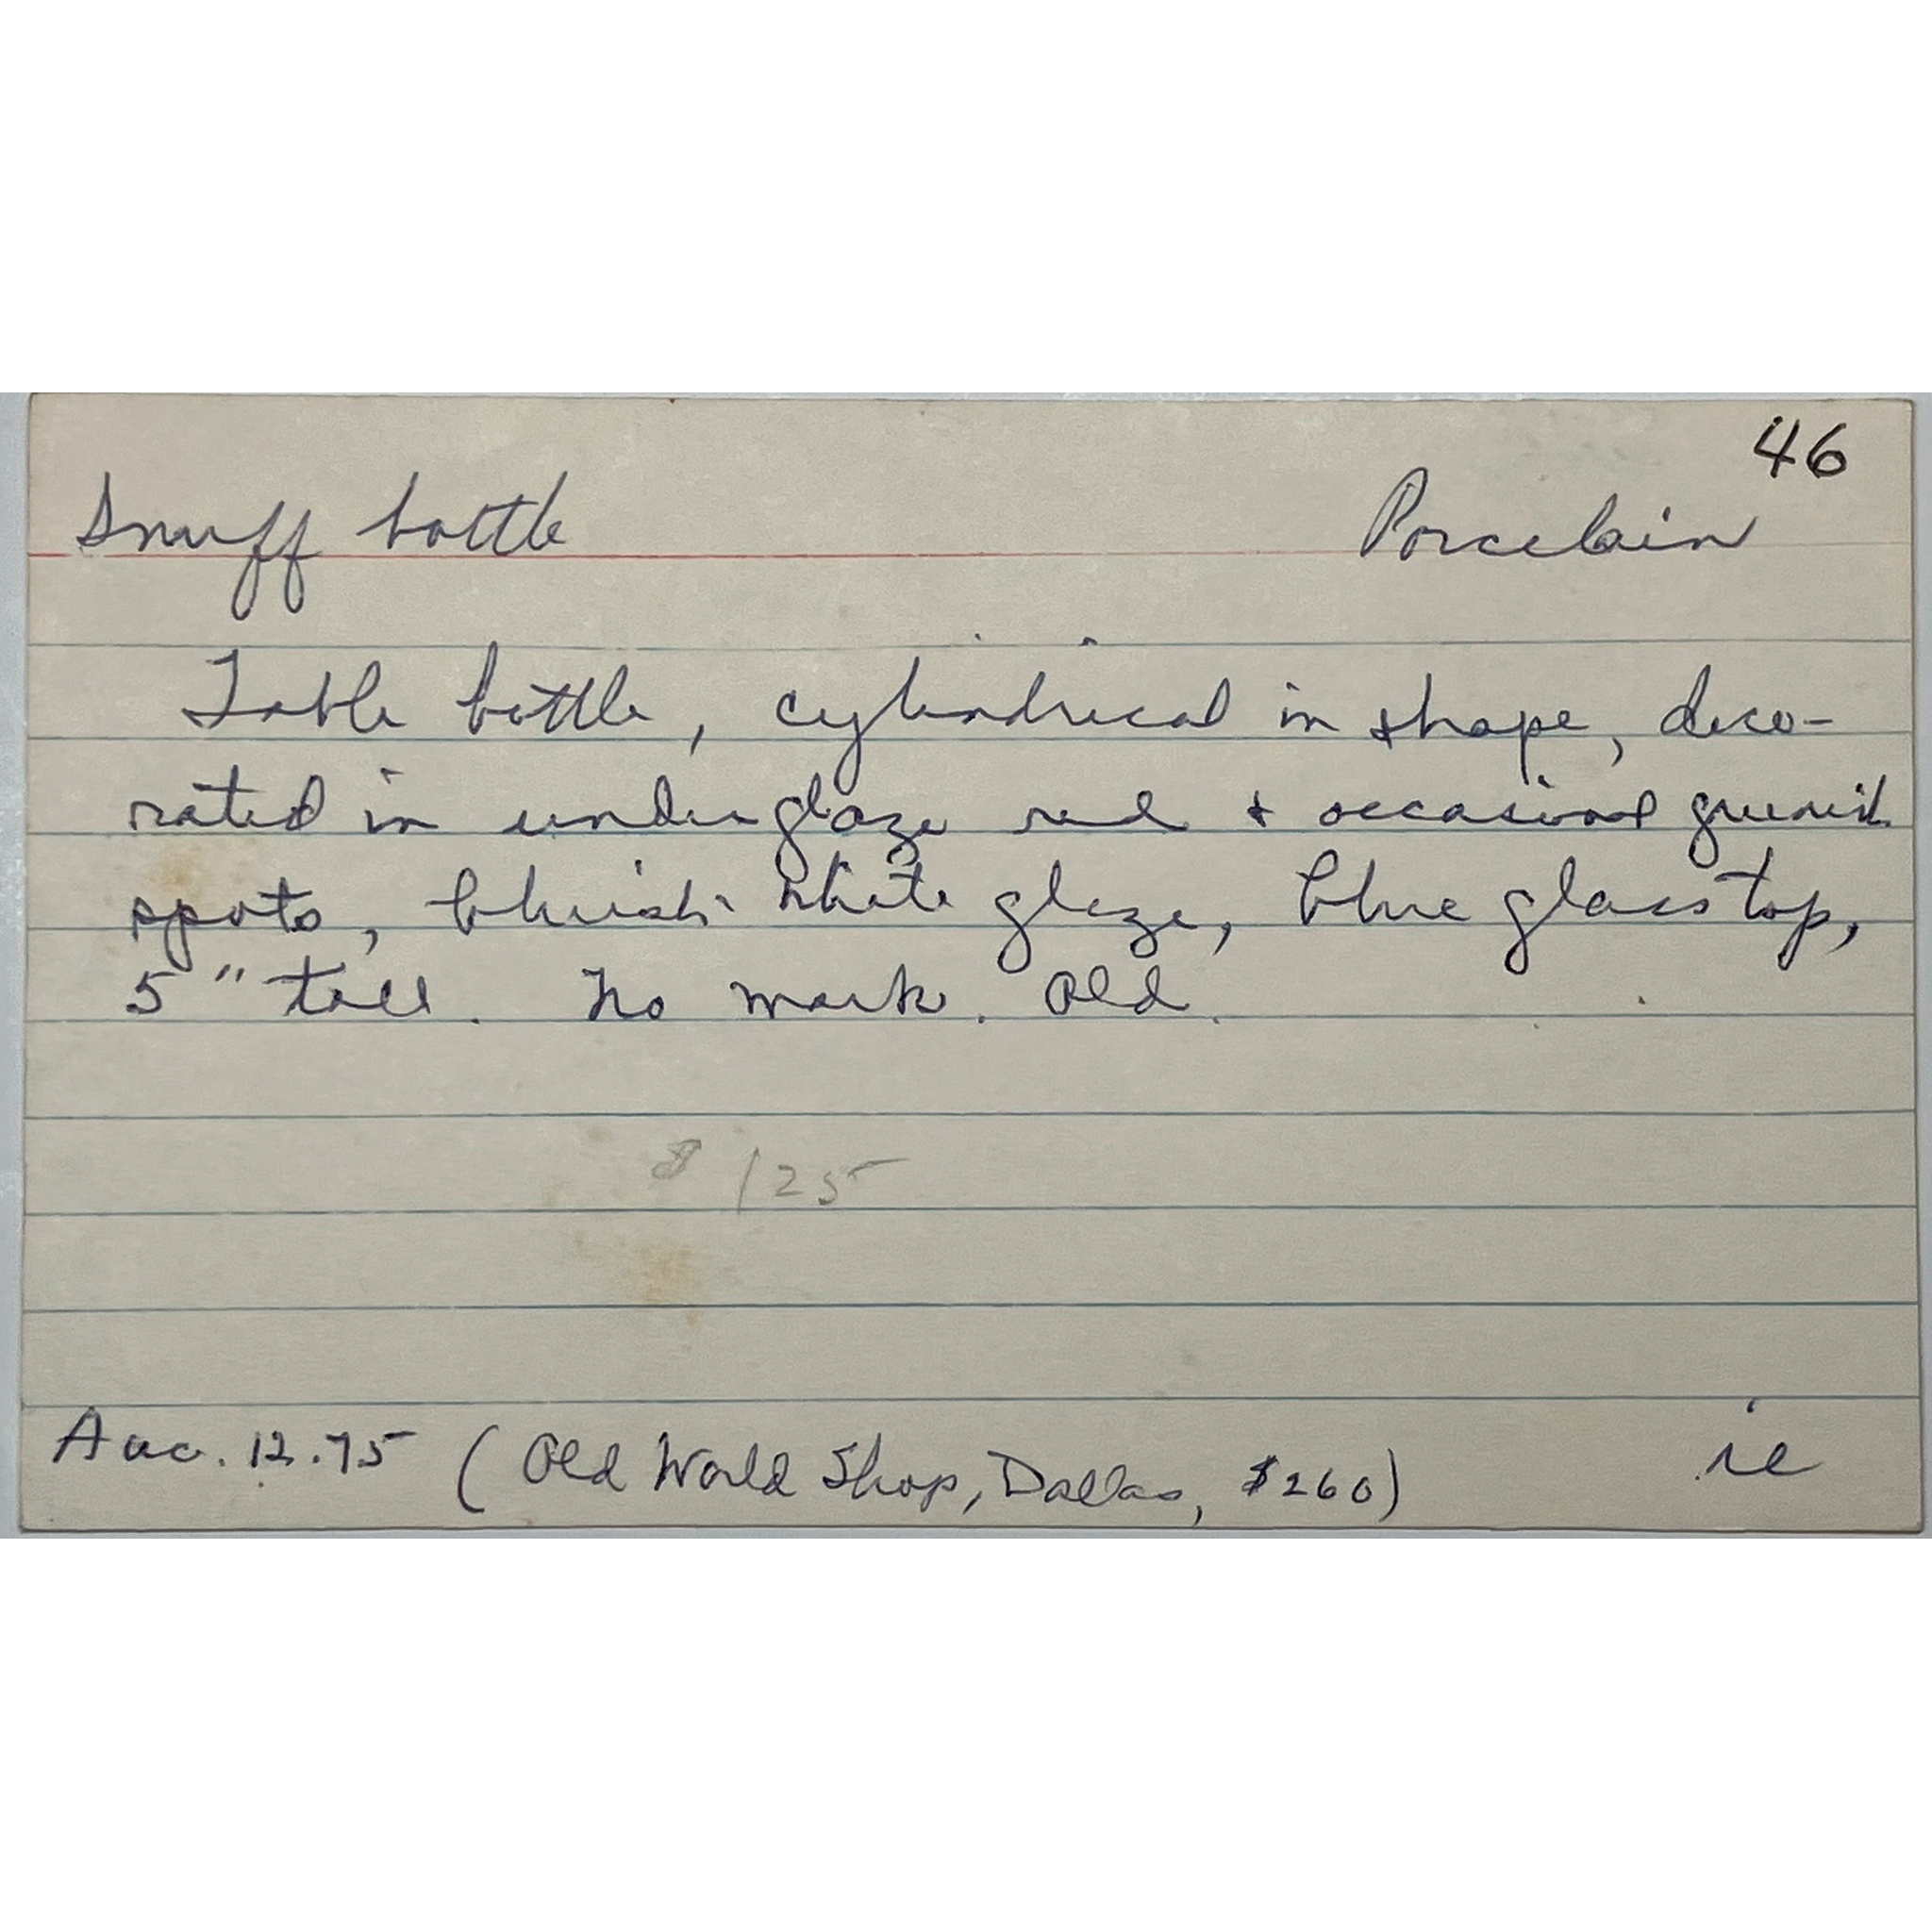 46
Snuff bottle Porcelain
Table bottle, cylindrical in shape, deco-
rated in underglaze red + occasional greenish
spots, bluish white glaze, blue glass top,
5" tall. No mark. Old.
$125
12.75 (Old World Shop, Dallas, $260)